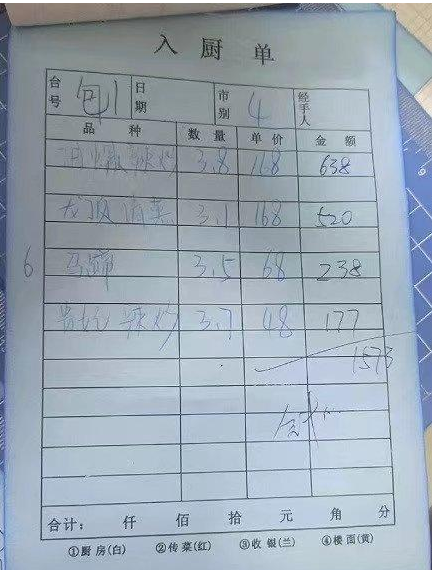 入厨单
台号 包1 日期 市别 4 经手人
品种 数量 单价 金额
辣炒 3.8 168 638
3.1 168 520
6 马蹄 3.5 68 238
辣炒 3.7 48 177
1573
合计： 仟 佰 拾 元 角 分
①厨房(白) ②传菜(红) ③收银(兰) ④楼面(黄)